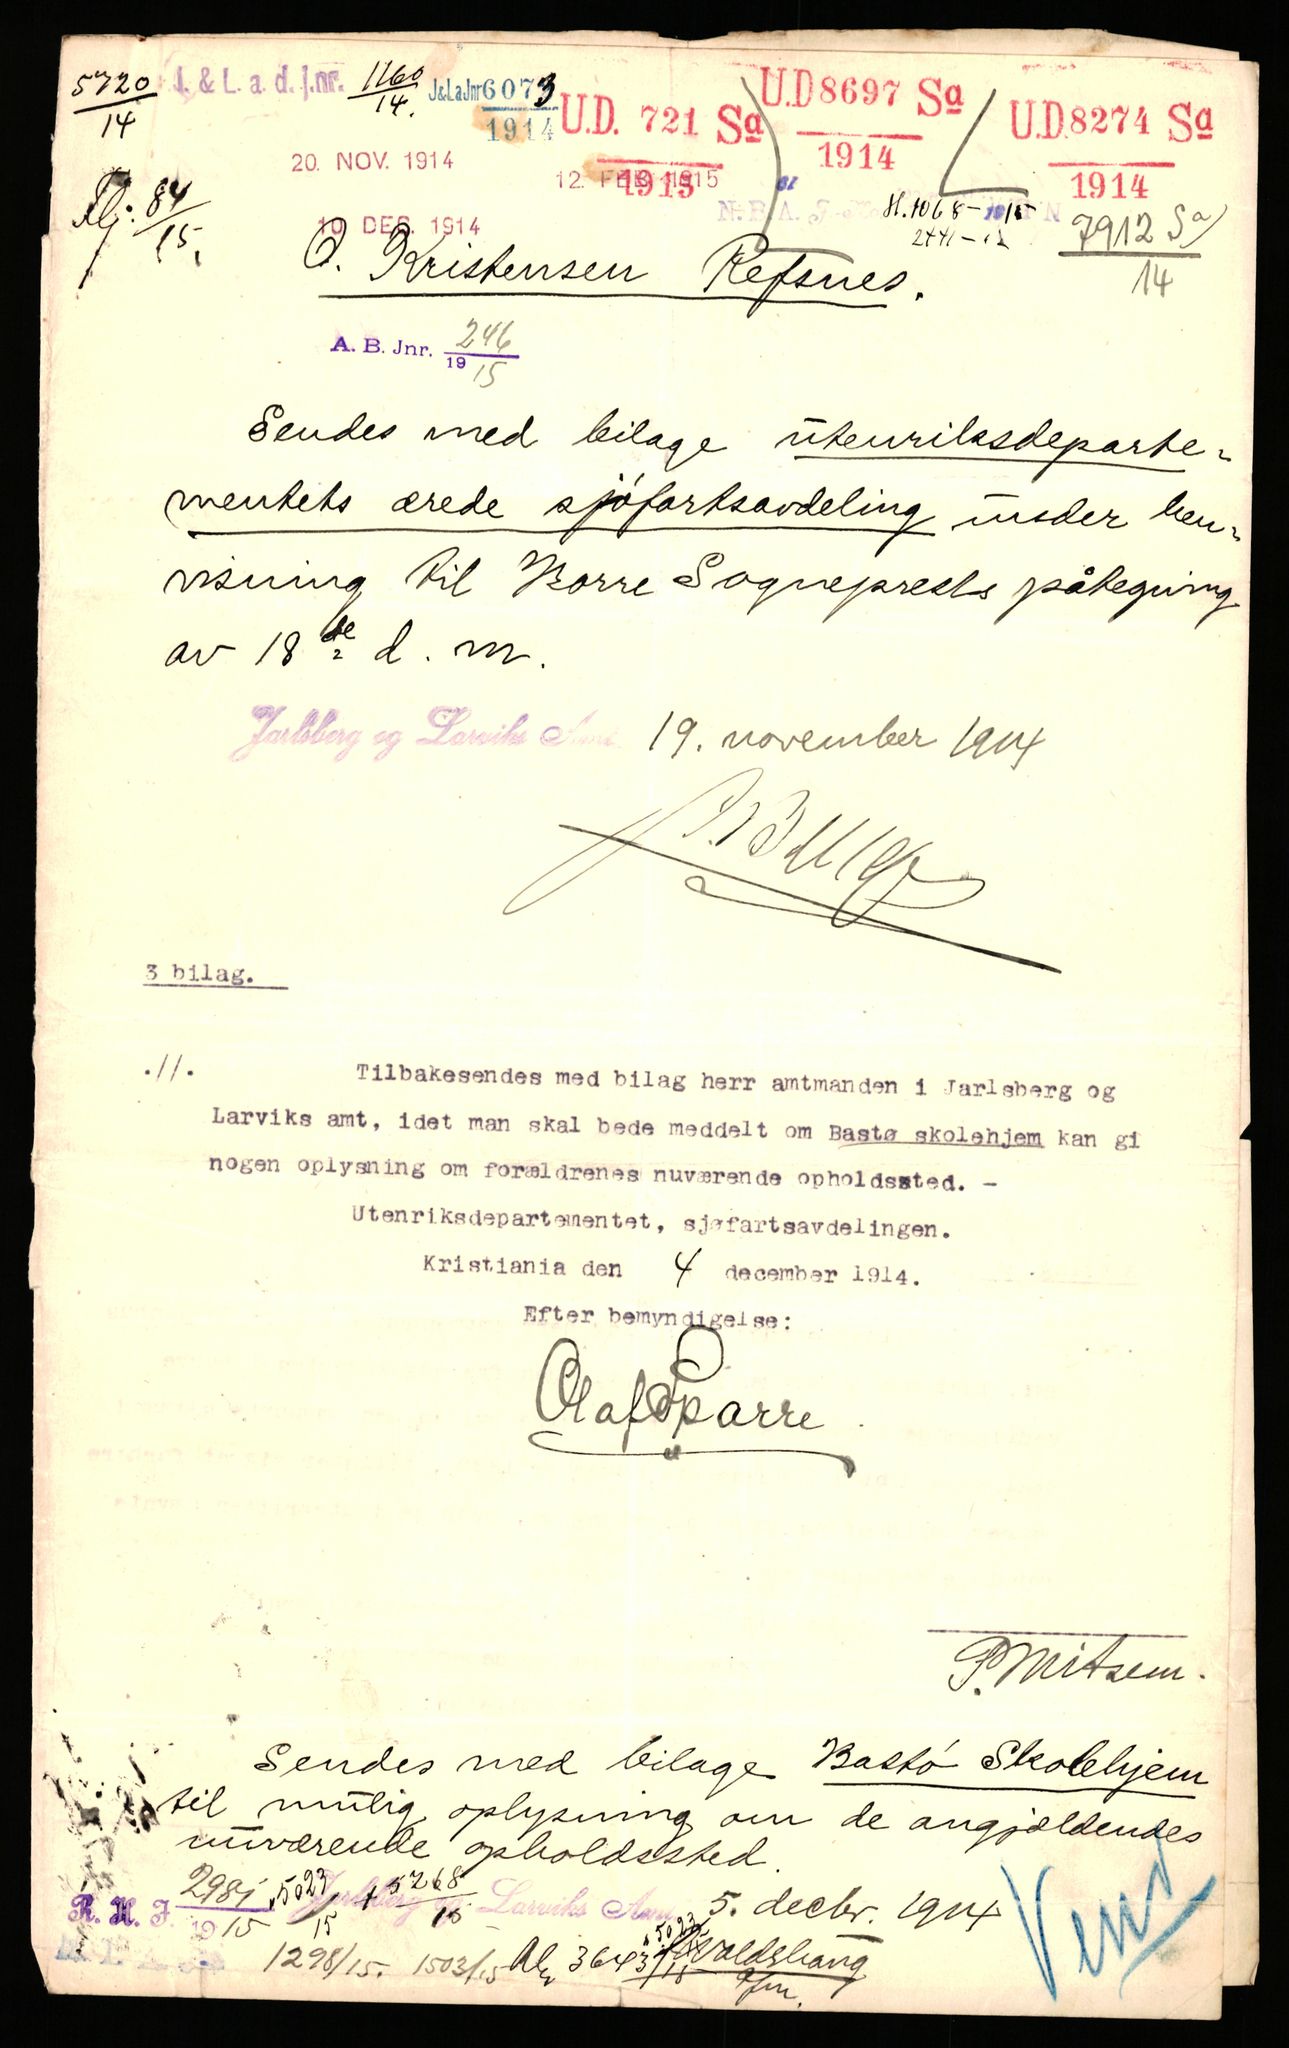 5720
14
J. & L. a. d. j.nr. 1160
14.
J&LaJnr 6073
1914
U.D. 721 Sa
1915
U.D 8697 Sa
1914
U.D. 8274 Sa
1914
20. NOV. 1914
12. FEB. 1915
10 DES. 1914
84
15.
H. 1068-1915
7912 Sa
14
O. Kristensen Refsnes.
A. B. Jnr. 246
1915
Sendes med bilage utenriksdeparte-
mentets ærede sjófartsavdeling under hen-
visning til Borre Sogneprests påtegning
av 18de d. m.
Jarlsberg og Larviks Amt 19. november 1914
3 bilag.
.//.
Tilbakesendes med bilag herr amtmanden i Jarlsberg og
Larviks amt, idet man skal bede meddelt om Bastø skolehjem kan gi
nogen oplysning om forældrenes nuværende opholdssted. -
Utenriksdepartementet, sjøfartsavdelingen.
Kristiania den 4 december 1914.
Efter bemyndigelse:
Olaf Sparre
P. Mitsem.
Sendes med bilage Bastó Skolehjem
til mulig oplysning om de angjældendes
nuværende opholdssted.
R. H. J. 2981
1915
5023
15
5268
15
Jarlsberg og Larviks Amt 5. decbr. 1914
1298/15. 1503/15 3643/15
Vend